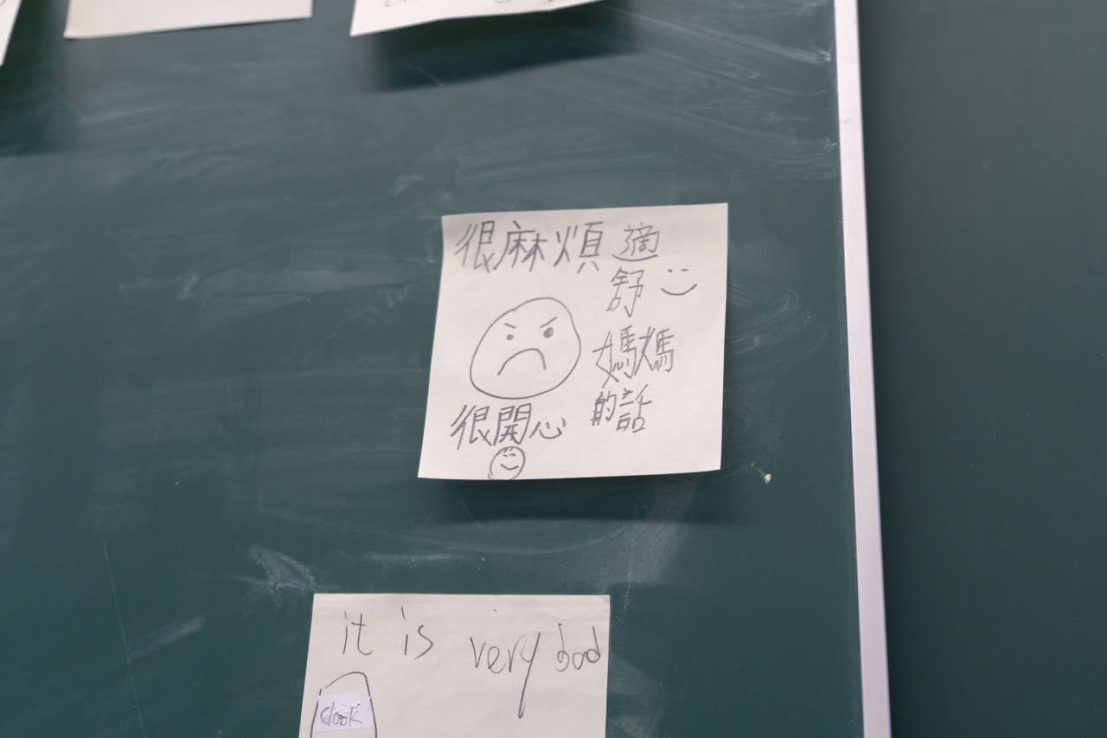 很麻煩
適
舒
媽媽
的話
很開心
it is very bad
clook